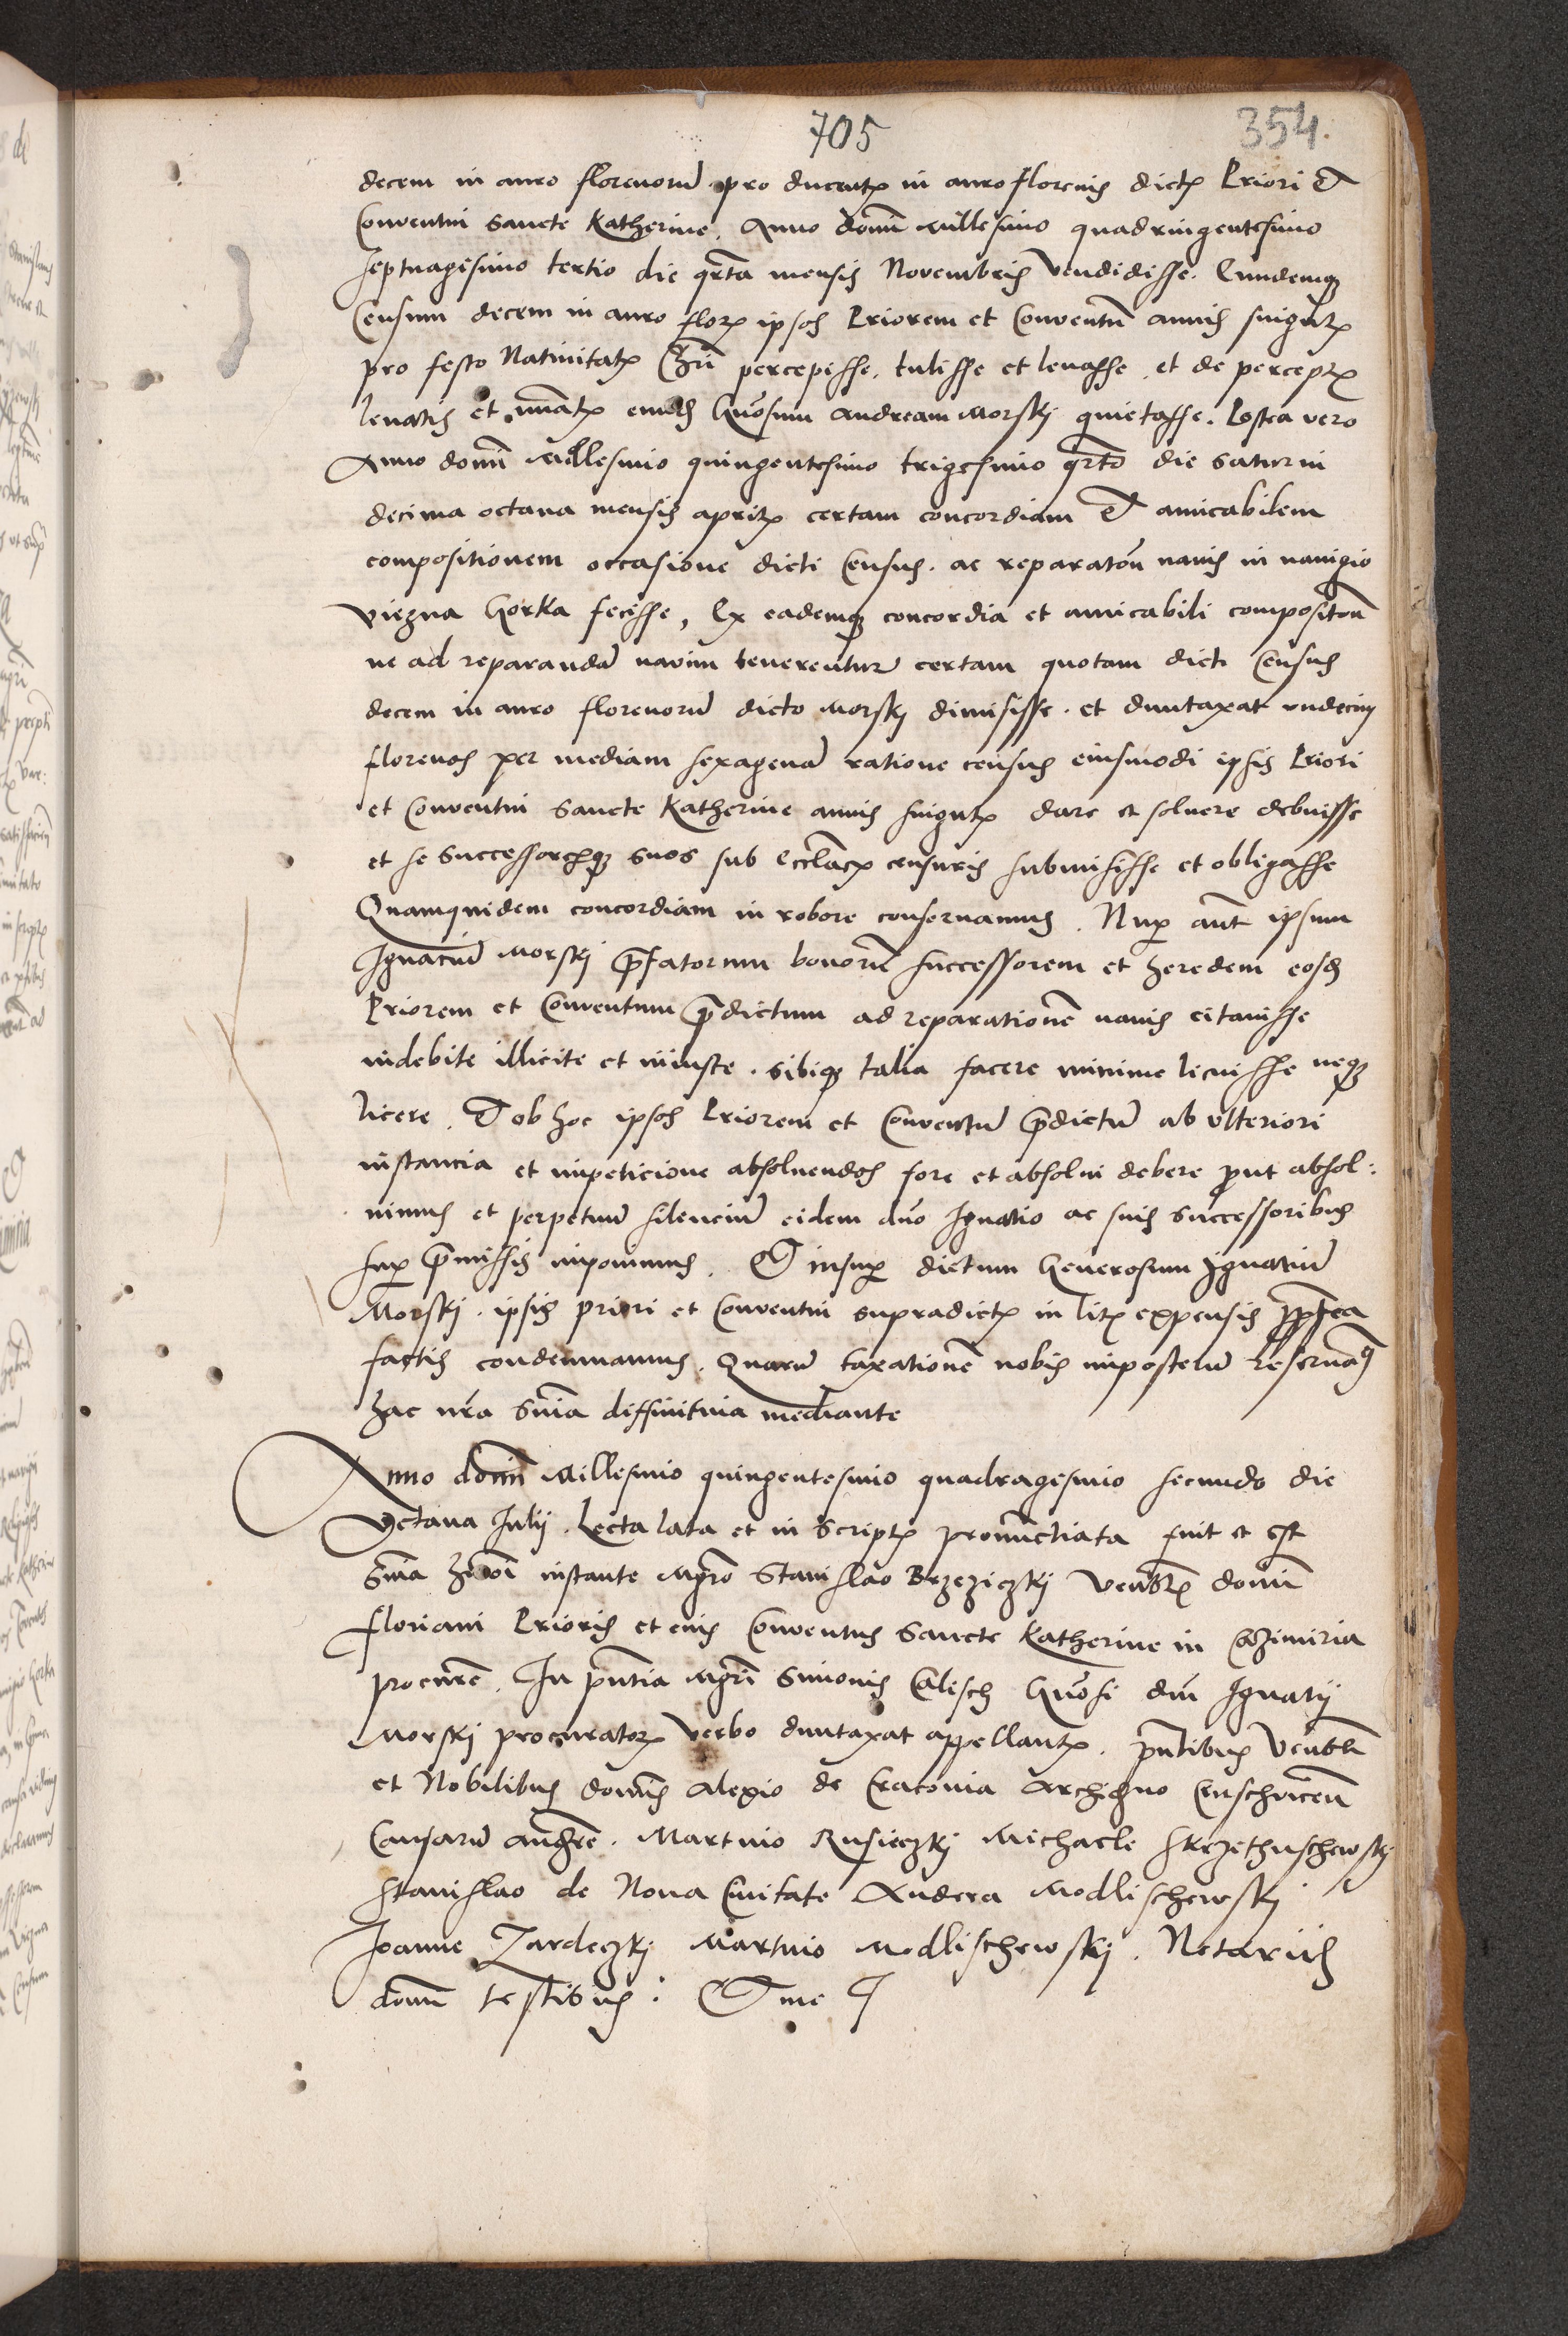 705
354.
decem in auro florenorum pro ducentis in auro florenis dictis Priori Et
Conventui Sancte Katherine. Anno domini Millesimo quadringentesimo
septuagesimo tertio die quarta mensis Novembris vendidisse. Eundemque
Censum decem in auro florenorum ipsos Priorem et Conventum annis singulis
pro festo Nativitatis percepisse, tulisse et levasse, et de perceptis
levatis et eundem Generosum Andream Morskj quietasse. Postea vero
Anno domini Millesimo quingentesimo trigesimo quarto die Saturni
decima octava mensis Aprilis certam concordiam Et amicabilem
compositionem occasione dicti Census. ac reparationis navis in navigio
Viezna Gorka fecisse, Ex eademque concordia et amicabili compositione
ne ad reparandam navim tenerentur certam quotam dicti Census
decem in auro florenorum dicto Morskj dimisisse. et duntaxat undecim
florenos per mediam sexagenam ratione census eiusmodi ipsis Priori
et Conventui Sancte Katherine annis singulis dare et solvere debuisse
et se successoresque suos sub Ecclesiasticis censuris submisisse et obligasse
Quamquidem concordiam in robore conservamus. Nuper autem ipsum
Ignacium Morskj prefatorum bonorum successorem et heredem eosdem
Priorem et Conventum predictum ad reparationem navis citavisse
indebite illicite et iniuste. Sibique talia facere minime licuisse neque
licere. Et ob hoc ipsos Priorem et Conventum predictum ab ulteriori
instancia et impeticione absolvendos fore et absolvi debere prout absol:
vimus et perpetuum silencium eidem domino Ignatio ac suis successoribus
super premissis imponimus. Et insuper dictum Generosum Ignatium
Morskj. ipsis priori et Conventui supradictis in litis expensis propterea
factis condemnamus. Quarum taxationem nobis imposterum reservamus
hac nostra sententia diffinitiva mediante
Anno domini Millesimo quingentesimo quadragesimo secundo die
Octava Julij. Lecta lata et in scriptis pronunctiata fuit et est
Sententia instante Magistro Stanislao Brzeziczkj Venerabilis domini
Floriani Prioris et eius Conventus Sancte Katherine in Cazimiria
procuratore. In presentia Magistri Simonis Calisch Generosi domini Ignatij
Morskj procuratoris verbo duntaxat appellantis. presentibus Venerabili
et Nobilibus dominis Alexio de Cracovia Archidiacono
Causarum auditore. Martino Rusieczkj Michaele Skrzethuschewskj
Stanislao de Nova Civitate Andrea Modlischewskj
Joanne Zardeczkj Martino Modlischewskj. Notariis
domini testibus: Et me J